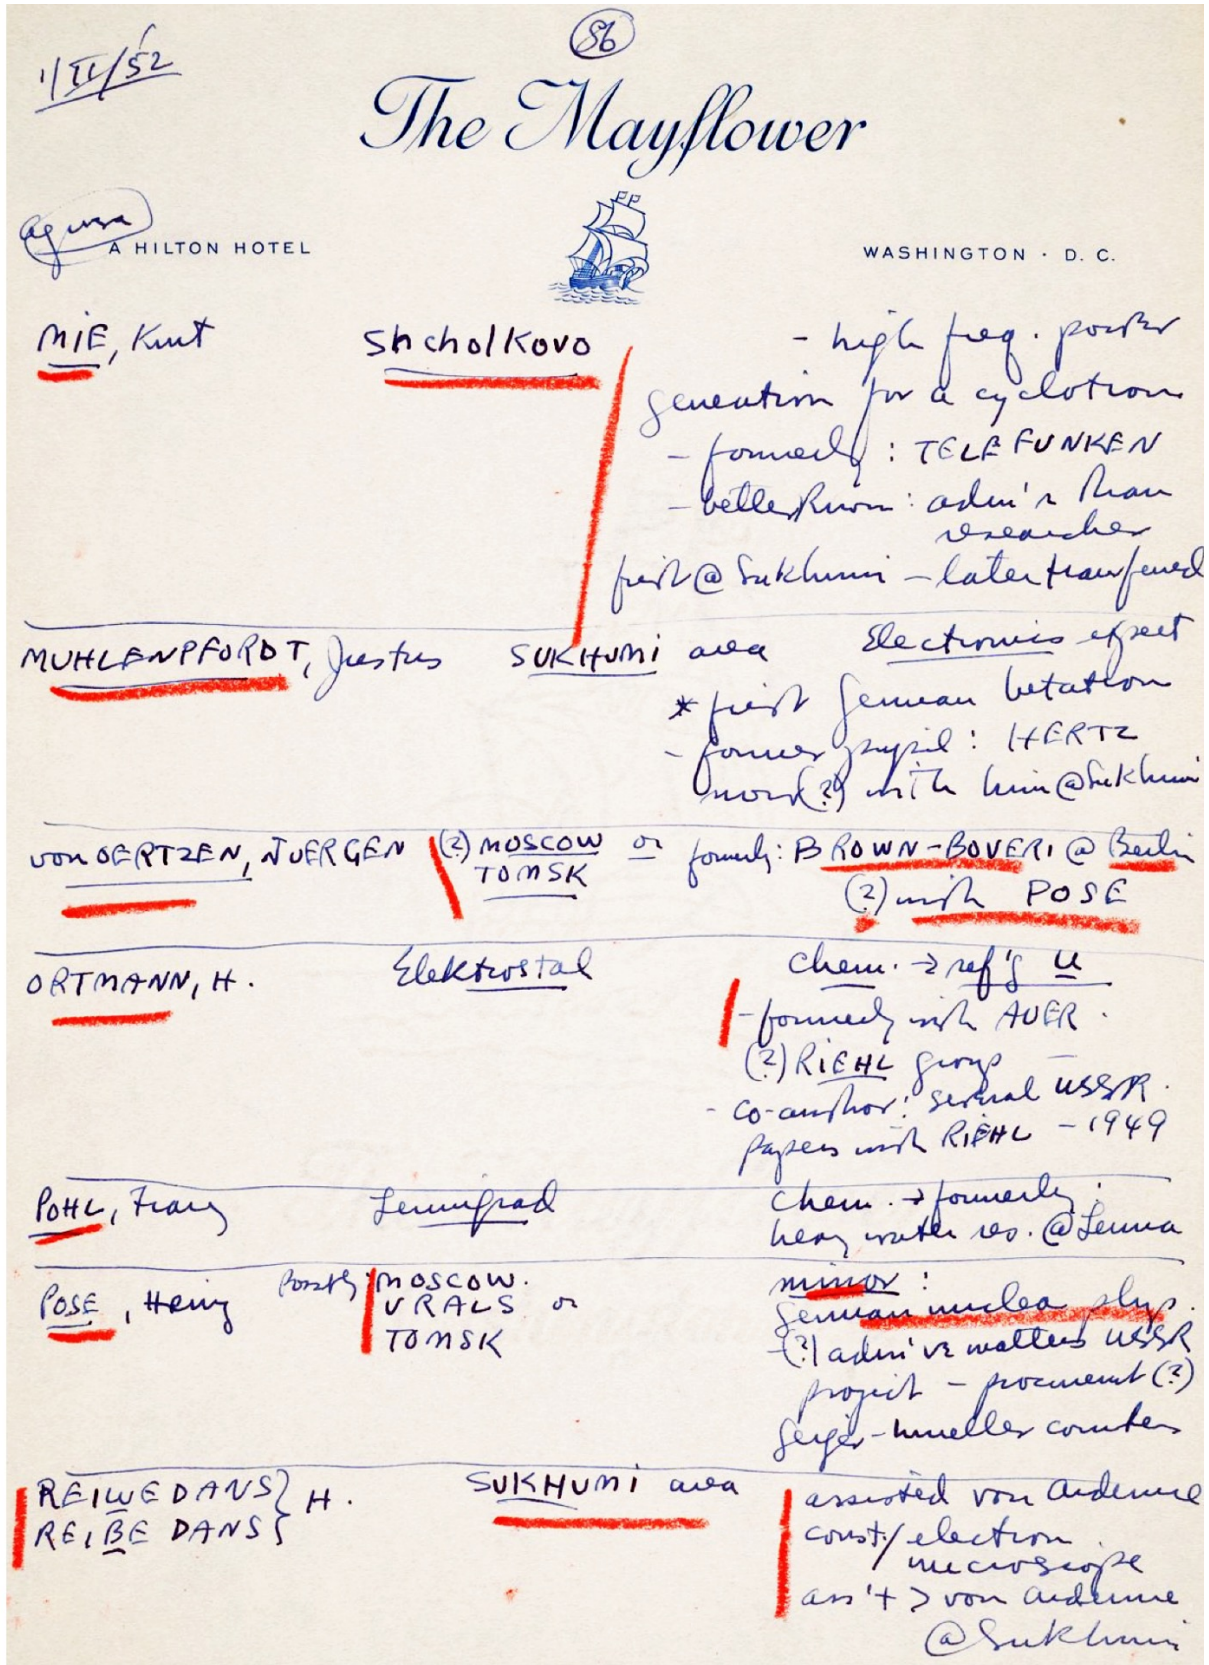 86
1/II/52
The Mayflower
A HILTON HOTEL
WASHINGTON · D. C.
MIE, Kurt Shcholkovo - high freq. power
generation for a cyclotron
- formerly : TELEFUNKEN
- better known : adm'r than
researcher
first @ Sukhumi - later transferred
MUHLENPFORDT, Justus SUKHUMI area Electronics expert
* first German betatron
- former pupil : HERTZ
now (?) with him @ Sukhumi
von OERTZEN, JUERGEN (?) MOSCOW or formerly: BROWN-BOVERI @ Berlin
TOMSK
(?) with POSE
ORTMANN, H. Elektrostal Chem. → ref'g U
- formerly with AUER.
(?) RIEHL group -
- co-author: several USSR.
papers with RIEHL - 1949
POHL, Franz Leningrad Chem. → formerly:
heavy water res. @ Leuna
POSE, Heinz Possibly: MOSCOW. minor :
URALS or German nuclear phys.
TOMSK - (?) adm've matters USSR
project - procurement (?)
geiger-mueller counters
REIWEDANS } H. SUKHUMI area assisted von Ardenne
REIBEDANS } const./electron
microscope
ass't > von Ardenne
@ Sukhumi